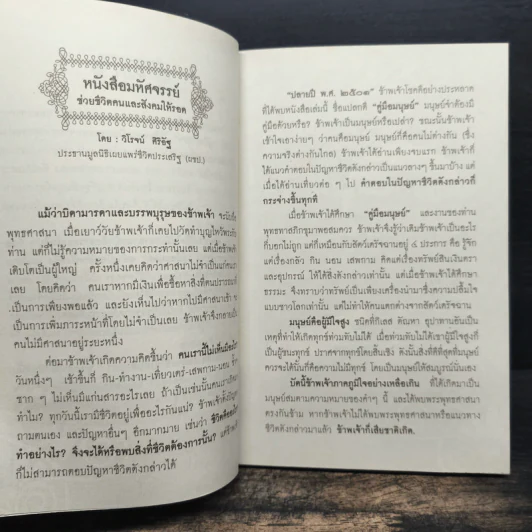 หนังสือมหัศจรรย์
ช่วยชีวิตคนและสังคมให้รอด
โดย : วิโรจน์ ศิริอัฐ
ประธานมูลนิธิเผยแพร่ชีวิตประเสริฐ (ผชป.)
แม้ว่าบิดามารดาและบรรพบุรุษของข้าพเจ้า จะนับถือ
พุทธศาสนา เมื่อเยาว์วัยข้าพเจ้าก็เคยไปวัดทำบุญไหว้พระ
ท่าน แต่ก็ไม่รู้ความหมายของการกระทำนั้นเลย แต่เมื่อข้าพเจ้า
เติบโตเป็นผู้ใหญ่ ครั้งหนึ่งเคยคิดว่าศาสนาไม่จำเป็นแก่คน
เลย โดยคิดว่า คนเราหากมีเงินเพื่อซื้อหาสิ่งที่ตนปรารถนา
เป็นการเพียงพอแล้ว และยังเห็นไปว่าหากไปมีศาสนาเข้า
เป็นการเพิ่มภาระหน้าที่โดยไม่จำเป็นเลย ข้าพเจ้าจึงกลายเป็น
คนไม่มีศาสนาอยู่ระยะหนึ่ง
ต่อมาข้าพเจ้าเกิดความคิดขึ้นว่า คนเรานี้ไม่เห็นมี
วันหนึ่งๆ เช้าขึ้นก็ กิน-ทำงาน-เที่ยวเตร่-เสพกาม-นอน
ซาก ๆ ไม่เห็นมีแก่นสารอะไรเลย ถ้าเป็นเช่นนั้นคนเรา
ทำไม? ทุกวันนี้เรามีชีวิตอยู่เพื่ออะไรกันแน่? ข้าพเจ้า
ถามตนเอง และปัญหาอื่นๆ อีกมากมาย เช่นว่า ชีวิตคือ
ทำอย่างไร? จึงจะได้หรือพบสิ่งที่ชีวิตต้องการนั้น? แต่
ก็ไม่สามารถตอบปัญหาชีวิตดังกล่าวได้
"ปลายปี พ.ศ. ๒๕๐๑" ข้าพเจ้าโชคดีอย่างประหลาด
ที่ได้พบหนังสือเล่มนี้ ชื่อแปลกดี "คู่มือมนุษย์" มนุษย์จำต้องมี
คู่มือด้วยหรือ? ข้าพเจ้าเป็นมนุษย์หรือเปล่า? ขณะนั้นข้าพเจ้า
เข้าใจเอาง่ายๆ ว่าคนคือมนุษย์ มนุษย์ก็คือคนไม่ต่างกัน (ซึ่ง
ความจริงต่างกันไกล) ข้าพเจ้าได้อ่านเพียงจบแรก ข้าพเจ้าก็
ได้แนวคำตอบในปัญหาชีวิตดังกล่าวเป็นแนวลางๆ ขึ้นมาบ้าง แต่
เมื่อได้อ่านเที่ยวต่อ ๆ ไป คำตอบในปัญหาชีวิตดังกล่าวก็
กระจ่างขึ้นทุกที
เมื่อข้าพเจ้าได้ศึกษา "คู่มือมนุษย์" และงานของท่าน
พุทธทาสภิกขุมาพอสมควร ข้าพเจ้าจึงรู้ว่าเดิมข้าพเจ้าเป็นอะไร
ก็บอกไม่ถูก แต่ก็เหมือนกับสัตว์เดรัจฉานอยู่ ๔ ประการ คือ รู้จัก
แต่เรื่องกลัว กิน นอน เสพกาม คิดแต่เรื่องทรัพย์สินเงินตรา
และอุปกรณ์ ให้ได้สิ่งดังกล่าวเท่านั้น แต่เมื่อข้าพเจ้าได้ศึกษา
ธรรมะ จึงทราบว่าทรัพย์เป็นเพียงเครื่องนำมาซึ่งความปลื้มใจ
แบบชาวโลกเท่านั้น แต่ไม่ทำให้คนแตกต่างจากสัตว์เดรัจฉาน
มนุษย์คือผู้มีใจสูง ชนิดที่กิเลส ตัณหา อุปาทานอันเป็น
เหตุที่ทำให้เกิดทุกข์ท่วมทับไม่ได้ เมื่อท่วมทับไม่ได้เขาผู้มีใจสูงก็
เป็นผู้ชนะทุกข์ ปราศจากทุกข์โดยสิ้นเชิง ดังนั้นสิ่งที่ดีที่สุดที่มนุษย์
ควรจะได้นั้นก็คือความไม่มีทุกข์ โดยเป็นมนุษย์ให้สมบูรณ์นั่นเอง
บัดนี้ข้าพเจ้าภาคภูมิใจอย่างเหลือเกิน ที่ได้เกิดมาเป็น
มนุษย์สมตามความหมายของคำๆ นี้ และได้พบพระพุทธศาสนา
ตรงกันข้าม หากข้าพเจ้าไม่ได้พบพระพุทธศาสนาหรือแนวทาง
ชีวิตดังกล่าวมาแล้ว ข้าพเจ้าก็เสียชาติเกิด.